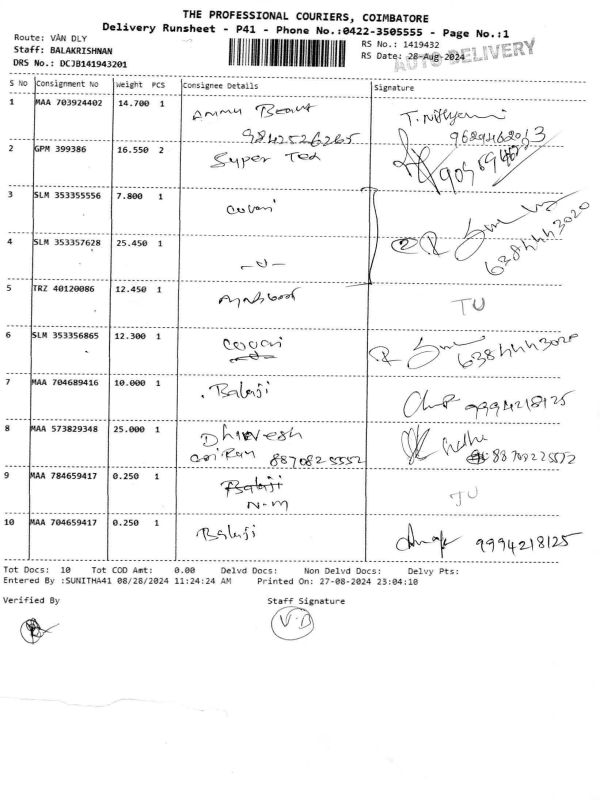 THE PROFESSIONAL COURIERS, COIMBATORE
Delivery Runsheet - P41 - Phone No.:0422-3505555 - Page No.:1
Route: VAN DLY
RS No.: 1419432
Staff: BALAKRISHNAN
RS Date: 28-Aug-2024
AUTO DELIVERY
DRS No.: DCJB141943201
S No Consignment No Weight PCS Consignee Details Signature
1 MAA 703924402 14.700 1
9842526265
2 GPM 399386 16.550 2 Super Tex
3 SLM 353355556 7.800 1 covai
6384443020
4 SLM 353357628 25.450 1 -u-
5 TRZ 40120086 12.450 1 TU
6 SLM 353356865 12.300 1 covai 6384443020
7 MAA 704689416 10.000 1 Balaji 9994218125
8 MAA 573829348 25.000 1 Dhruvesh
8870825552
9 MAA 784659417 0.250 1 Balaji TU
N-M
10 MAA 704659417 0.250 1 Balaji 9994218125
Tot Docs: 10 Tot COD Amt: 0.00 Delvd Docs: Non Delvd Docs: Delvy Pts:
Entered By :SUNITHA41 08/28/2024 11:24:24 AM Printed On: 27-08-2024 23:04:10
Verified By Staff Signature
V.B